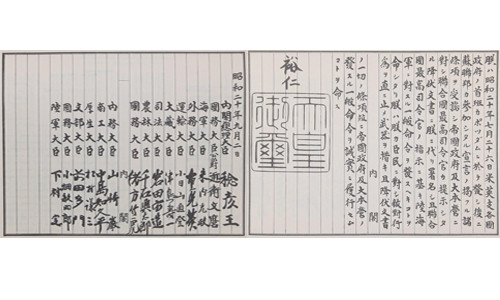 朕ハ昭和二十年七月二十六日米英支各國
政府ノ首班カポツダムニ於テ發シ後ニ
蘇聯邦カ參加シタル宣言ノ掲クル諸
條項ヲ受諾シ帝國政府及大本營ニ
對シ聯合國最高司令官カ提示シタ
ル降伏文書ニ朕ニ代リ署名シ且聯合
國最高司令官ノ指示ニ基キ陸海
軍ニ對スル一般命令ヲ發スヘキコトヲ
命シタリ朕ハ朕カ臣民ニ對シ敵對行
爲ヲ直ニ止メ武器ヲ措キ且降伏文書
内閣
ノ一切ノ條項竝ニ帝國政府及大本營ノ
發スル一般命令ヲ誠實ニ履行セム
コトヲ命ス
裕仁
天皇
御璽
昭和二十年九月二日
内閣總理大臣 稔彦王
國務大臣公爵 近衛文麿
海軍大臣 米内光政
外務大臣 重光葵
運輸大臣 小日山直登
大藏大臣 津島壽一
司法大臣 岩田宙造
農林大臣 千石興太郎
國務大臣 緒方竹虎
内閣
内務大臣 山崎巖
商工大臣 中島知久平
厚生大臣 松村謙三
文部大臣 前田多門
國務大臣 小畑敏四郎
陸軍大臣 下村定